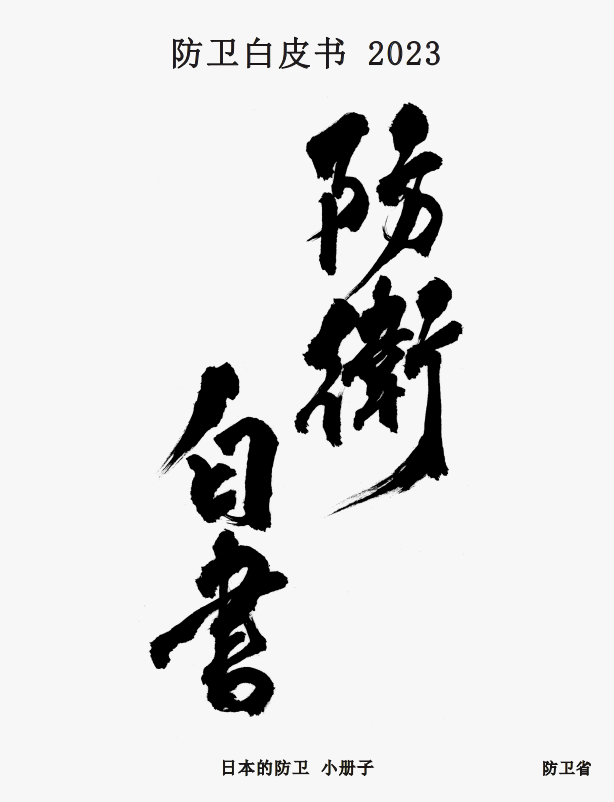 防卫白皮书 2023
防衛
白書
日本的防卫 小册子
防卫省